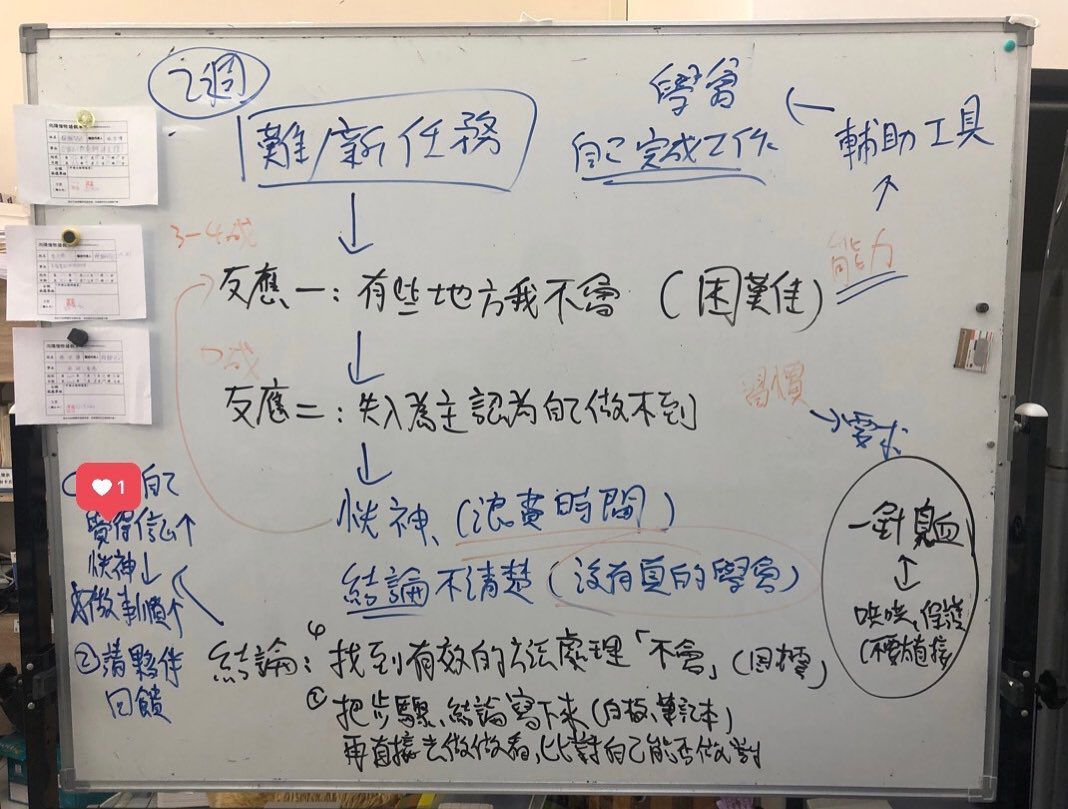 2週
難/新任務
學會
自己完成工作
輔助工具
能力
3-4成
反應一：有些地方我不會（困難佳）
7成
反應二：失入為主認為自己做不到
習慣
需求
恍神、（浪費時間）
結論不清楚（沒有真的學會）
一針見血
哄哄、保護
（不要太直接）
1
自己
覺得信心↑
恍神↓
做事順↑
②請夥伴
回饋
結論：找到有效的方法處理「不會」
②把步驟、結論寫下來（白板、筆記本）
再直接去做做看，比對自己能否做對